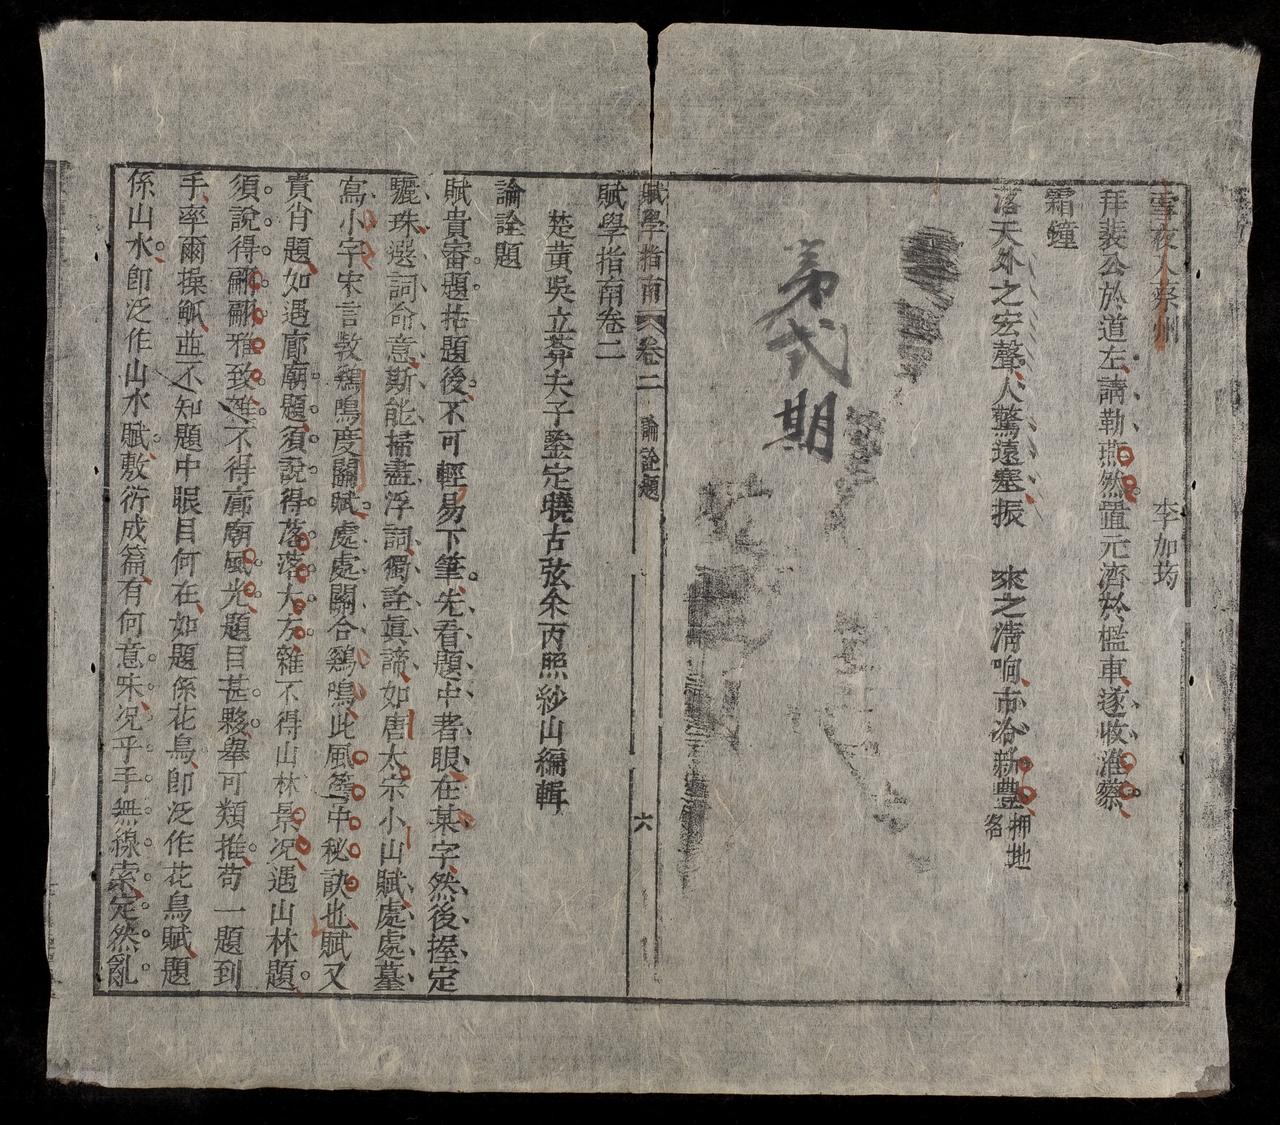 雪夜入蔡州 李加均
拜裴公於道左請勒燕然置元濟於檻車遂收淮蔡
霜鐘
落天外之宏聲人驚遠塞振 來之清响市冷新豐
掷地
第弍期
賦學指南 卷二 論詮題 六
賦學指南卷二
楚黃吳立莽夫子鑒定曉古弦余丙照紗山編輯
論詮題
賦貴審題拈題後不可輕易下筆先看題中者眼在某字然後握定
驪珠選詞命意斯能掃盡浮詞獨詮眞諦如唐太宗小山賦處處摹
寫小字宋言斆鷄鳴度關賦處處關合鷄鳴此風簷中秘訣也賦又
貴肖題如遇廊廟題須說得落落大方雜不得山林景况遇山林題
須說得翩翩雅致雜不得廊廟風光題目甚夥舉可類推苟一題到
手率爾操觚並不知題中眼目何在如題係花鳥卽泛作花鳥賦題
係山水卽泛作山水賦敷衍成篇有何意味况乎手無線索定然亂